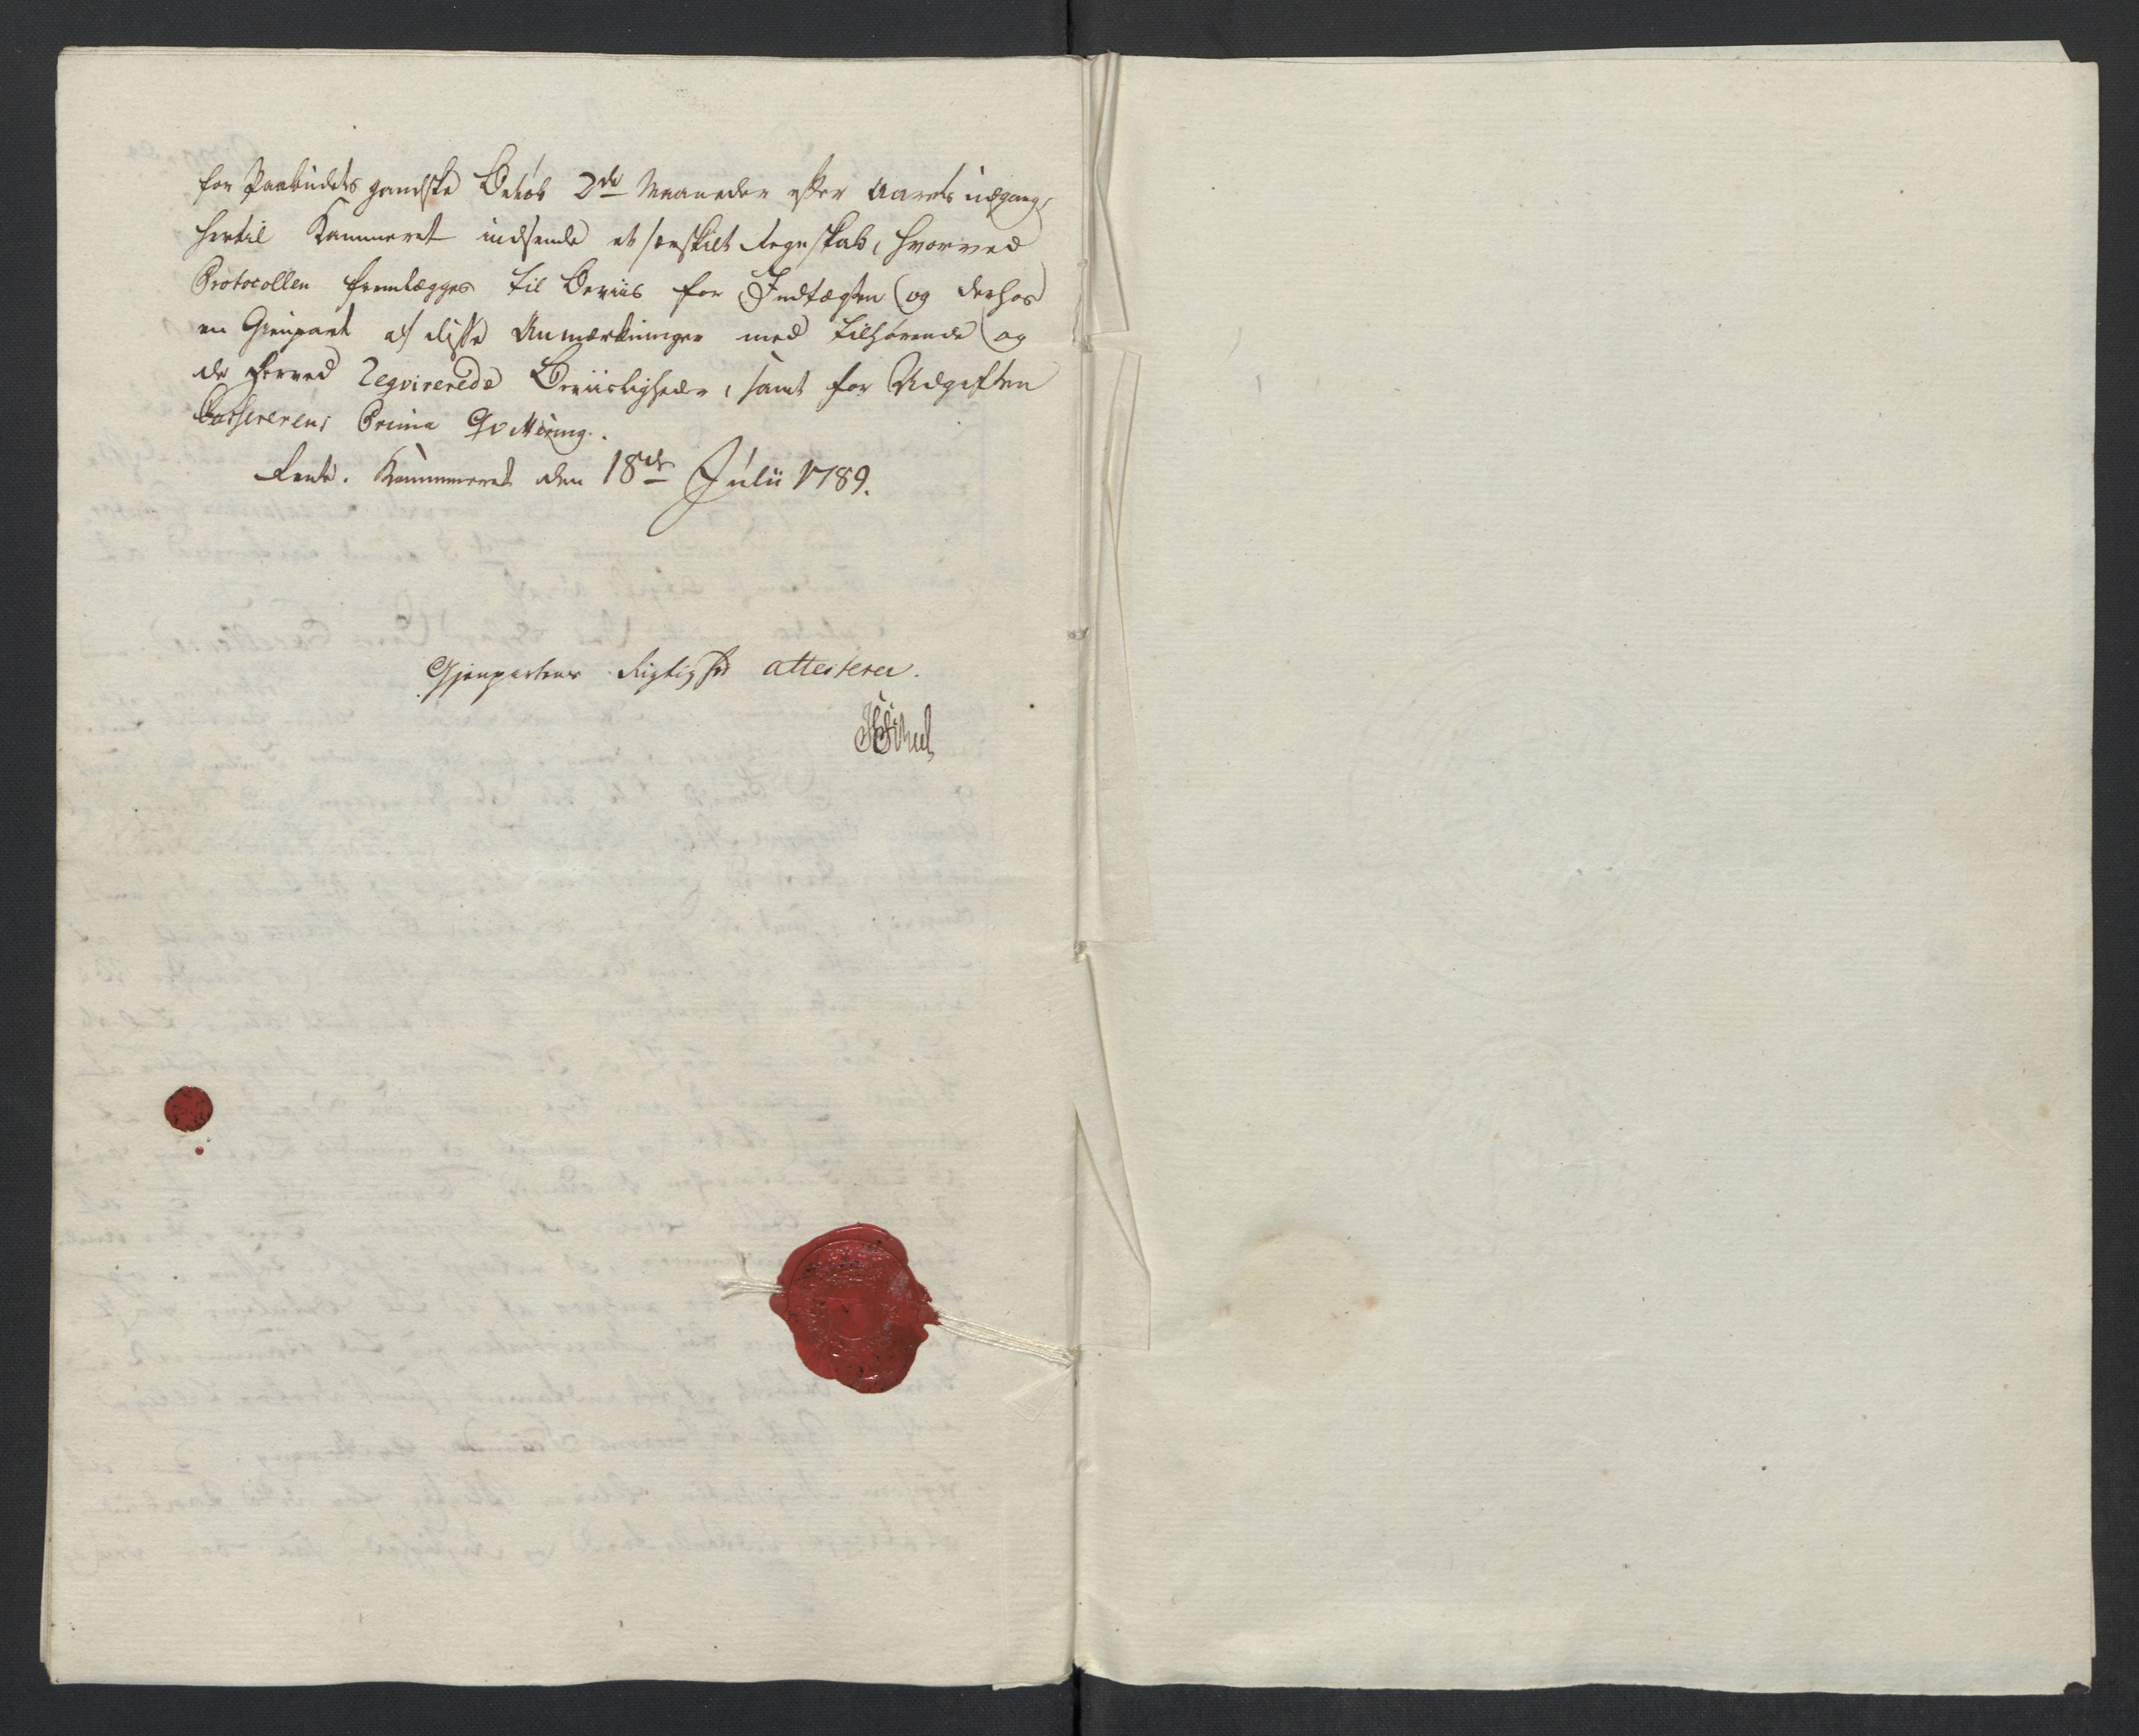 for Paabudets gandske Beløb 2de Maaneder efter Aarets udgang,
hertil Kammeret indsende et særskilt Regnskab, hvorved
Protocollen fremlægges til Beviis for Indtægten (og derhos
en Gienpart af disse Anmærkninger med tilhørende) og
de herved reqvirerede Beviisligheder, samt for Udgiften
Cassererens Primu Qvittering.
Rente-Kammeret den 18de Julii 1789.
Gjenpartens Rigtighed attesterer.